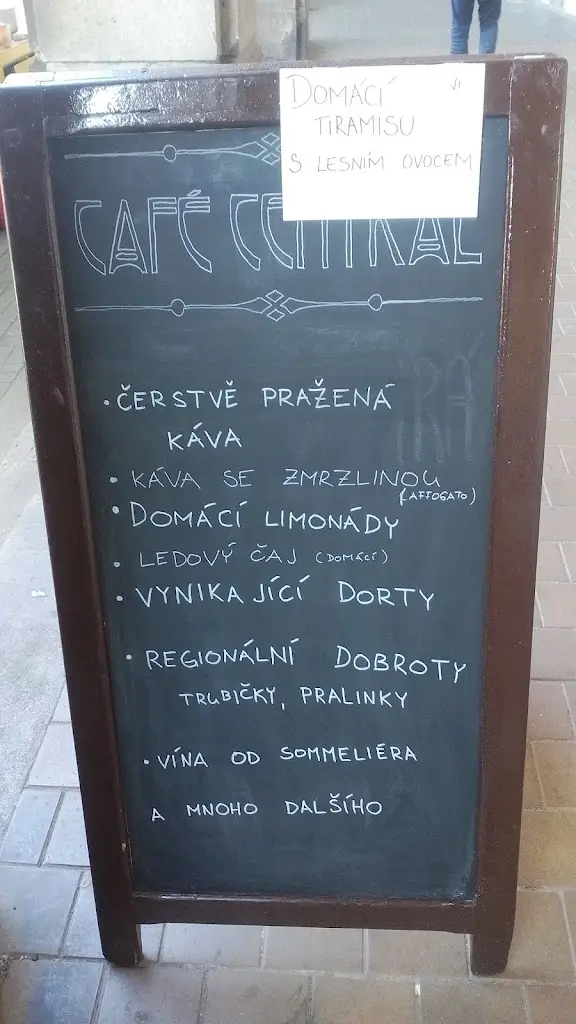 DOMÁCÍ
TIRAMISU
S LESNÍM OVOCEM
CAFÉ CENTRAL
• ČERSTVĚ PRAŽENÁ
KÁVA
• KÁVA SE ZMRZLINOU
(AFFOGATO)
• DOMÁCÍ LIMONÁDY
• LEDOVÝ ČAJ (DOMÁCÍ)
• VYNIKAJÍCÍ DORTY
• REGIONÁLNÍ DOBROTY
TRUBIČKY, PRALINKY
• VÍNA OD SOMMELIÉRA
A MNOHO DALŠÍHO